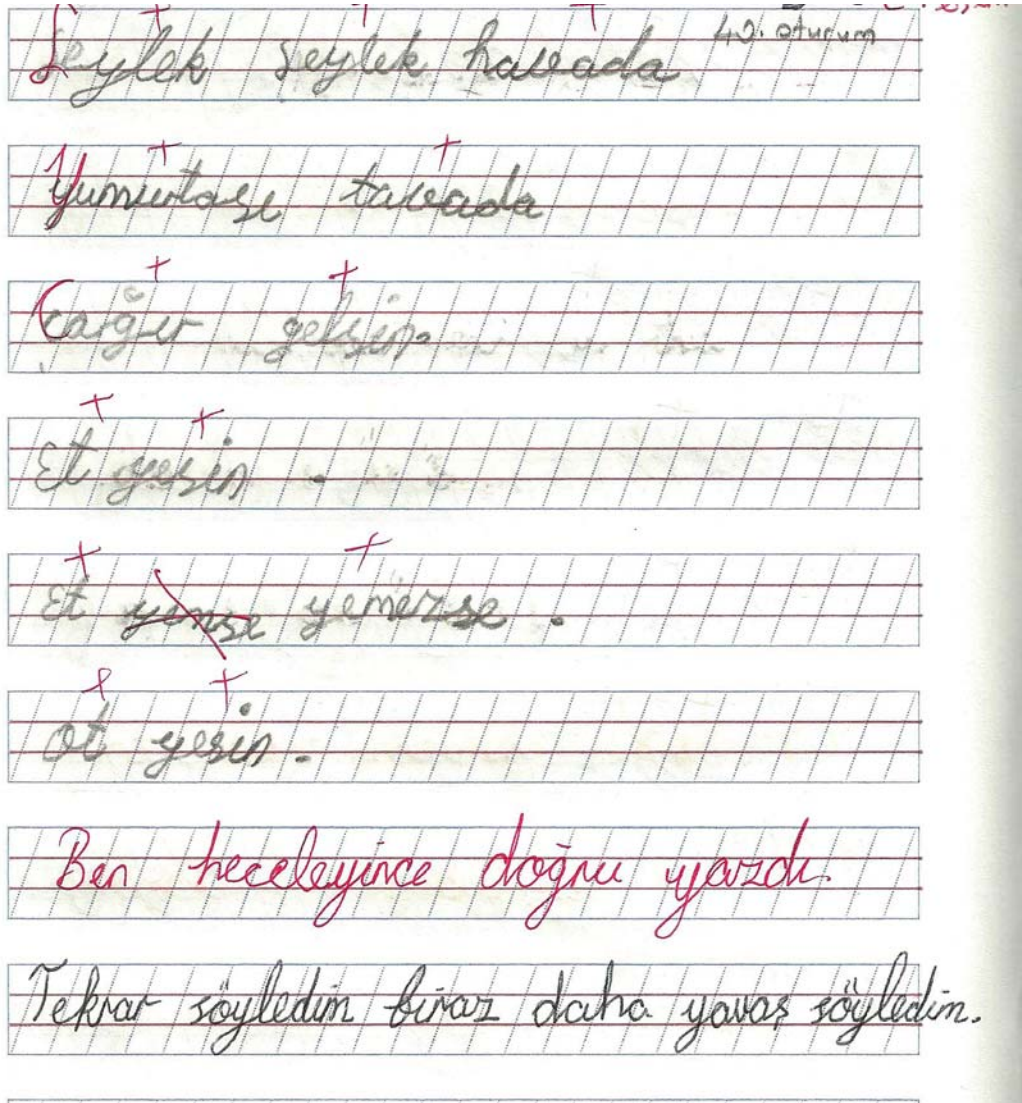 Leylek leylek havada
40. oturum
Yumurtası tavada
Çağır gelsin.
Et yesin.
Et yemse yemezse.
Ot yesin.
Ben heceleyince doğru yazdı.
Tekrar söyledim biraz daha yavaş söyledim.